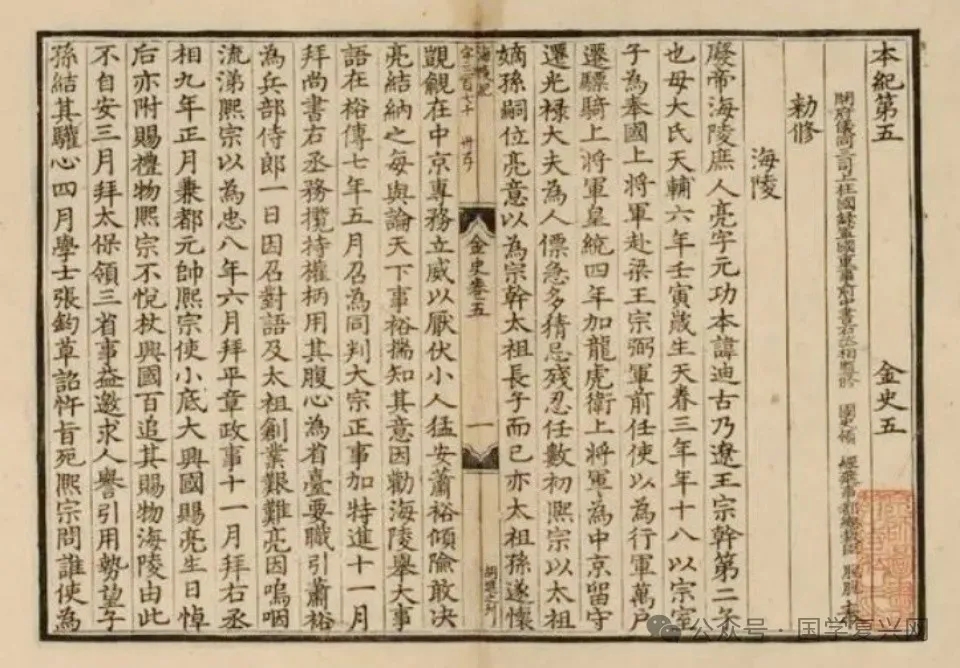 本紀第五 金史五
開府儀同三司上柱國録軍國重事前中書右丞相監修 國史領 經筵事都總裁臣 脫脫 奉
勑修
海陵
廢帝海陵庶人亮字元功本諱迪古乃遼王宗幹第二子
也母大氏天輔六年壬寅歲生天眷三年年十八以宗室
子為奉國上將軍赴梁王宗弼軍前任使以為行軍萬戶
遷驃騎上將軍皇統四年加龍虎衛上將軍為中京留守
遷光禄大夫為人僄急多猜忌殘忍任數初熙宗以太祖
嫡孫嗣位亮意以為宗幹太祖長子而已亦太祖孫遂懷
金史卷五
一
覬覦在中京專務立威以厭伏小人猛安蕭裕傾險敢决
亮結納之每與論天下事裕揣知其意因勸海陵舉大事
語在裕傳七年五月召為同判大宗正事加特進十一月
拜尚書右丞務攬持權柄用其腹心為省臺要職引蕭裕
為兵部侍郎一日因召對語及太祖創業艱難亮因嗚咽
流涕熙宗以為忠八年六月拜平章政事十一月拜右丞
相九年正月兼都元帥熙宗使小底大興國賜亮生日悼
后亦附賜禮物熙宗不悦杖興國百追其賜物海陵由此
不自安三月拜太保領三省事益邀求人譽引用勢望子
孫結其驩心四月學士張鈞草詔忤旨死熙宗問誰使為
公众号·国学复兴网